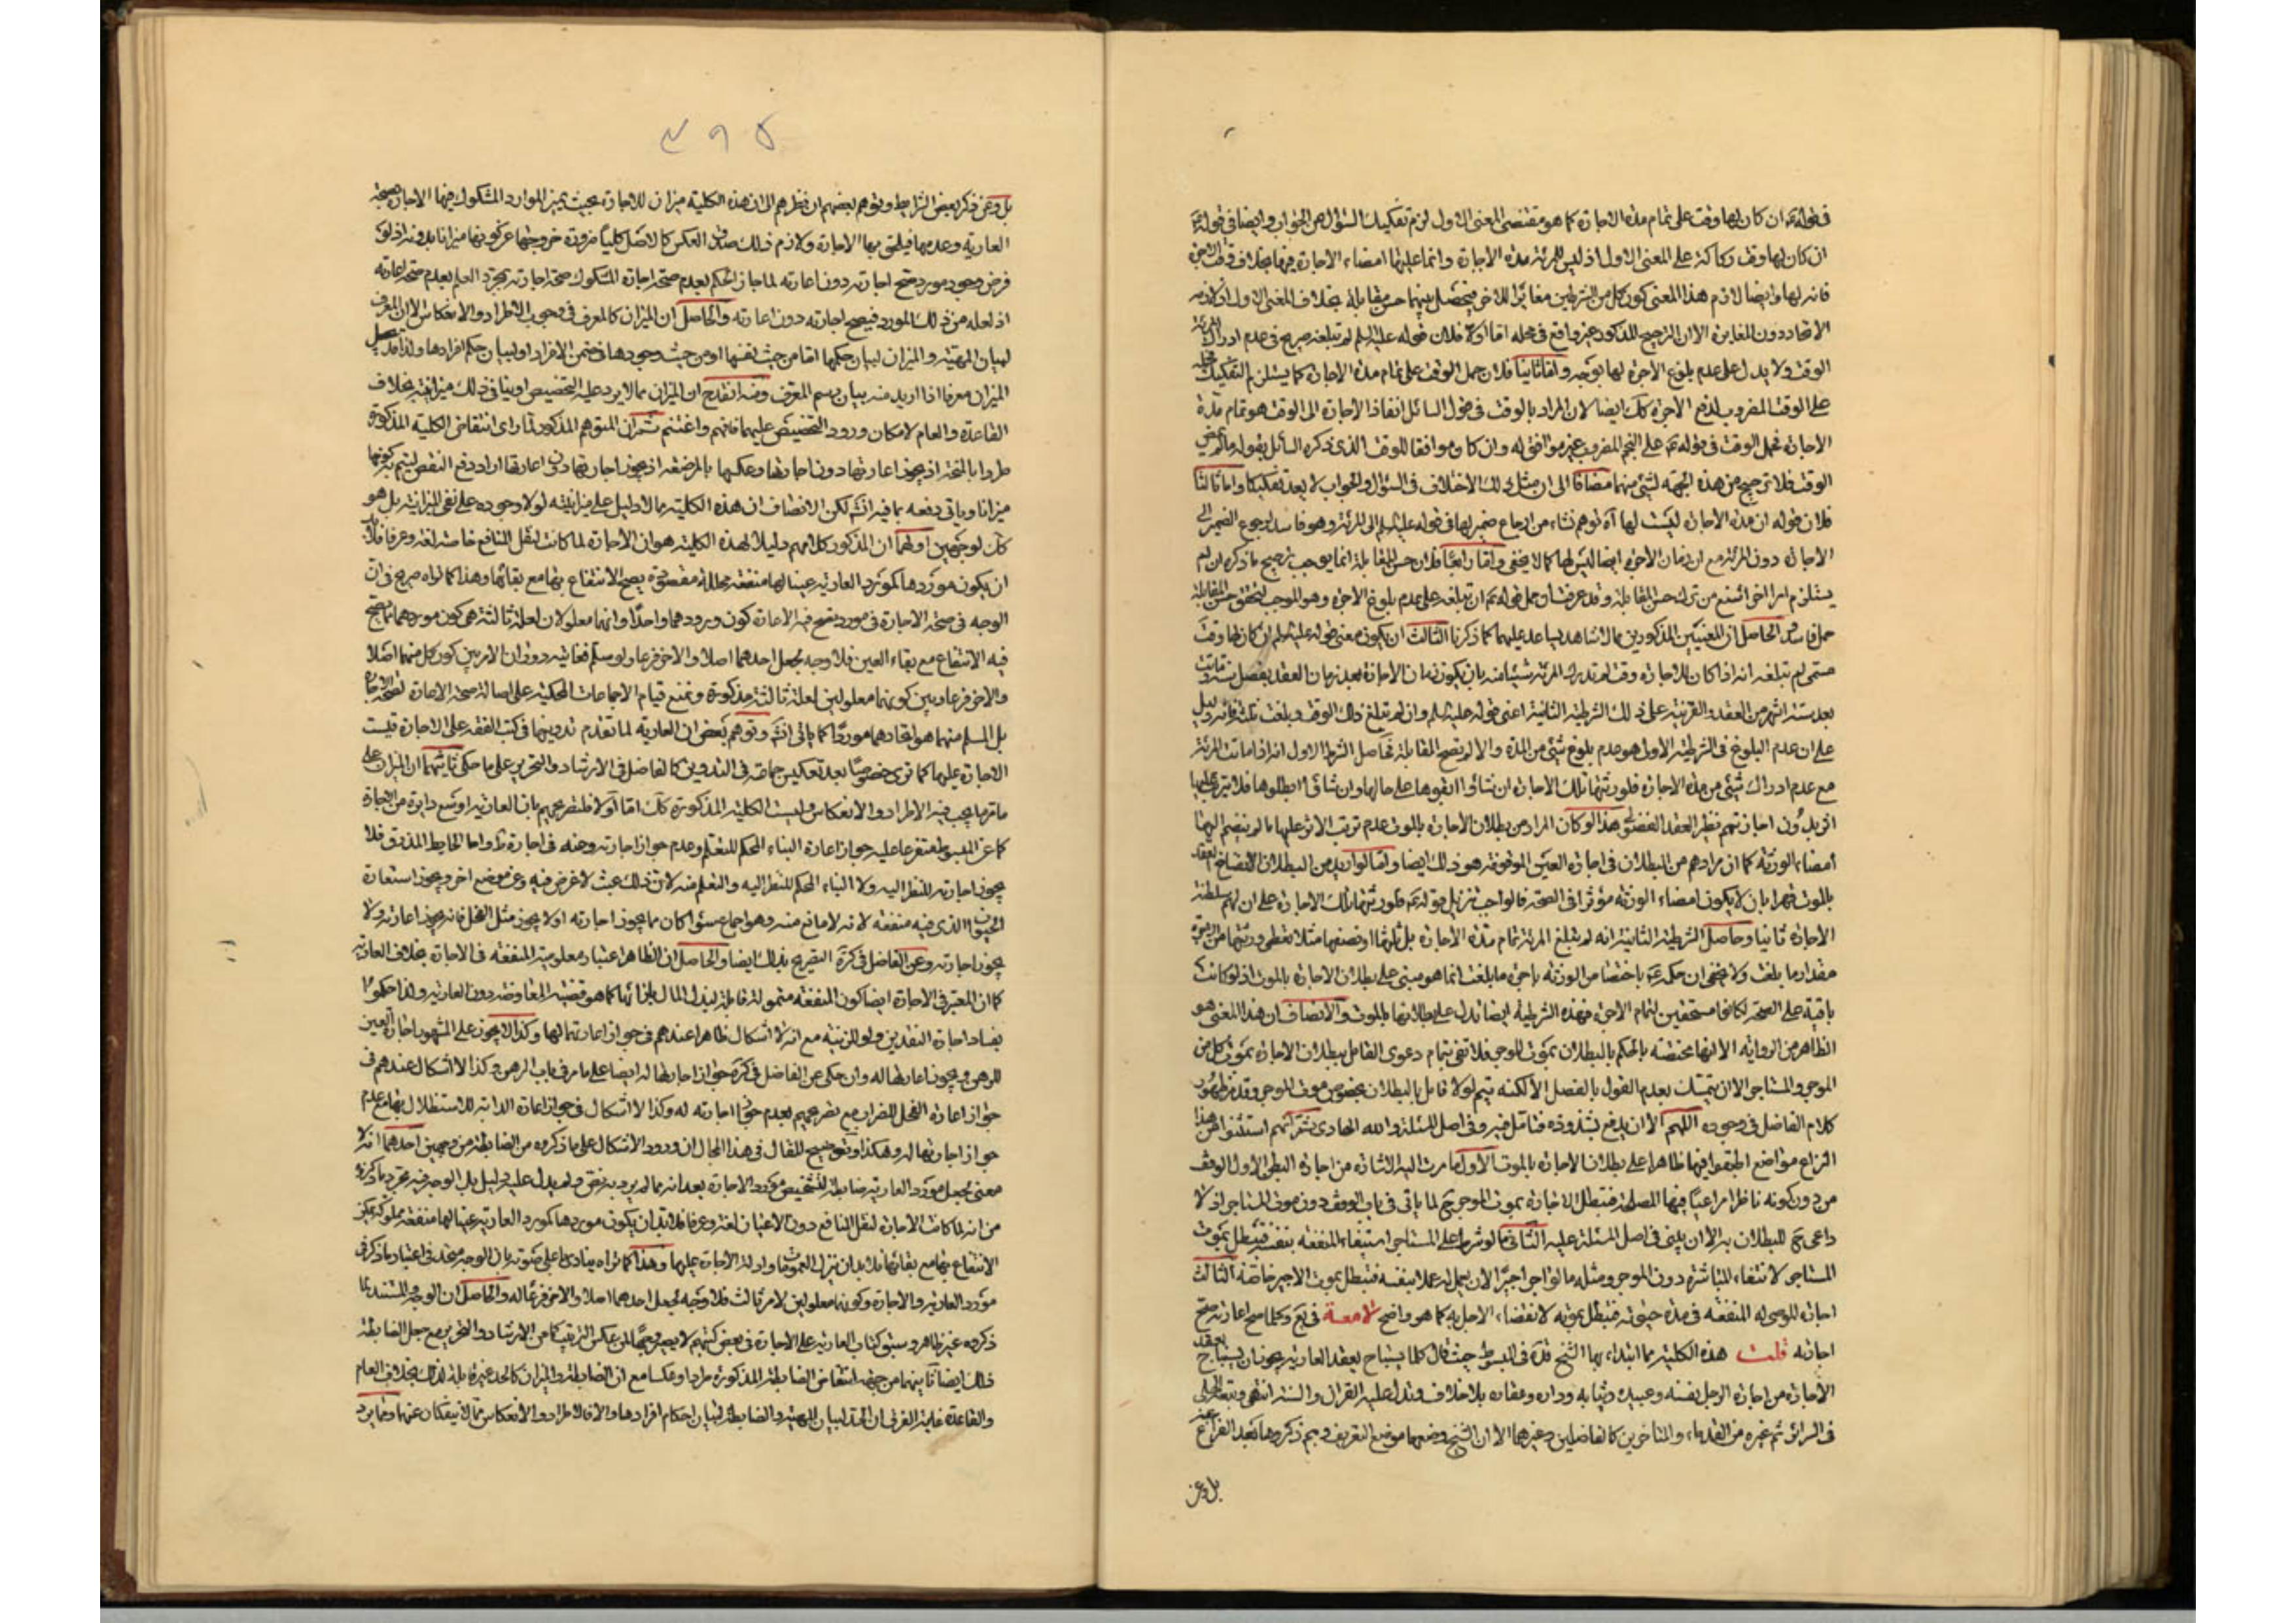 فى قوله ع ان كان لها وقت على تمام مدة الاجارة كما هو مقتضى المعنى الاول لزم تفكيك السؤال عن الجواب وايضا فى قوله ع
ان كان لها وقت ركاكة على المعنى الاول اذ ليس للمرئة مدة الاجارة وانما عليها امضاء الاجارة فيها بخلاف وقت الاجرة
فانه لها وايضا لازم هذا المعنى كون كل من الشرطين مغايرا للاخر فيحصل بينهما حسن مقابلة بخلاف المعنى الاول اذ لازمه
الاتحاد دون المغايرة الا ان الترجيح المذكور غير واقع فى محله اما اولا فلان قوله عليه السلم لم تبلغه صريح فى عدم ادراك المرئة
الوقت ولا يدل على عدم بلوغ الاجرة لها بوجه واما ثانيا فلان حمل الوقت على تمام مدة الاجارة كما يستلزم التفكيك حمله
على الوقت المضروب لدفع الاجرة كك ايضا لان المراد بالوقت فى قول السائل انفاذ الاجارة الى الوقت هو تمام مدة
الاجارة فحمل الوقت فى قوله ع على النجم المضروب غير موافق له وان كان موافقا للوقت الذى ذكره السائل بقوله مالم يمض
الوقت فلا ترجيح من هذه الجهة لشئ منهما مضافا الى ان مثل ذلك الاختلاف فى السؤال والجواب لا يعد تفكيكا واما ثالثا
فلان قوله ان مدة الاجارة ليست لها آه توهم نشاء من ارجاع ضمير لها فى قوله عليه السلم الى المرئة وهو فاسد لرجوع الضمير الى
الاجارة دون المرئة مع ان زمان الاجرة ايضا ليس لها كما لا يخفى واما رابعا فلان حسن المقابلة انما يوجب ترجيح ما ذكره ان لم
يستلزم امرا اخر اشنع من ترك حسن المقابلة وقد عرفت ان حمل قوله ع ان تبلغه على عدم بلوغ الاجرة وهو الموجب لتحقق حسن المقابلة
حمل فاسد الحاصل ان المعنيين المذكورين مما لا شاهد يساعد عليهما كما ذكرنا الثالث ان يكون معنى قوله عليه السلم ان كان لها وقت
مسمى لم تبلغه انه اذا كان للاجارة وقت لم تدرك المرئة شيئا منه بان يكون زمان الاجارة بعد زمان العقد بفصل سنة وماتت
بعد ستة اشهر من العقد والقرينة على ذلك الشرطية الثانية اعنى قوله عليه السلم وان لم تبلغ ذلك الوقت وبلغت ثلثه فانه دليل
على ان عدم البلوغ فى الشرطية الاولى هو عدم بلوغ شئ من المدة والا لم يصح المقابلة فحاصل الشرط الاول انه اذا ماتت المرئة
مع عدم ادراك شئ من مدة الاجارة فلورثتها تلك الاجارة ان شاؤا ابقوها على حالها وان شاؤا ابطلوها فلا يترتب عليها
اثر بدون اجازتهم نظير العقد الفضولى هذا لو كان المراد من بطلان الاجارة بالموت عدم ترتب الاثر عليها ما لم ينضم اليها
امضاء الورثة كما ان مرادهم من البطلان فى اجارة العين الموقوفة هو ذلك ايضا واما لو اريد من البطلان الانفساخ
بالموت قهرا بان لا يكون امضاء الورثة مؤثرا فى الصحة فالواجب تنزيل قوله ع فلورثتها تلك الاجارة على ان لهم سلطنة
الاجارة ثانيا وحاصل الشرطية الثانية انه لم تبلغ المرئة تمام مدة الاجارة بل ثلثها او نصفها مثلا تعطى ورثتها من
مقدار ما بلغت ولا يخفى ان حكمه ع باختصاص الورثة باجرة ما بلغت انما هو مبنى على بطلان الاجارة بالموت اذ لو كانت
باقية على الصحة لكانوا مستحقين لتمام الاجرة فهذه الشرطية ايضا تدل على بطلانها بالموت والانصاف ان هذا المعنى هو
الظاهر من الرواية الا انها مختصة بالحكم بالبطلان بموت الموجر فلا تفى بتمام دعوى القائل ببطلان الاجارة بموت كل من
الموجر والمستاجر الا ان يتمسك بعدم القول بالفصل الا لكنه يتم لو لا قائل بالبطلان بخصوص موت الموجر وقد مر ظهور
كلام الفاضل فى وجوده اللهم الا ان يدفع بشذوذه فتامل فيه وفى اصل المسئلة والله الهادى ثم انهم استثنوا من هذا
النزاع مواضع اطبقوا فيها ظاهرا على بطلان الاجارة بالموت الاول ما مرت اليه الاشارة من اجارة البطن الاول الوقف
من دون كونه ناظرا مراعيا فيها المصلحة فتبطل الاجارة بموت الموجر ح لما ياتى فى باب الوقف دون موت المستاجر اذ لا
داعى ح للبطلان به الا ان يبنى فى اصل المسئلة عليه الثانى ما لو شرط على المستاجر استيفاء المنفعة بنفسه فتبطل بموت
المستاجر لانتفاء المباشرة دون الموجر ومثله ما لو اجر اجيرا لان يعمل له عملا بنفسه فتبطل بموت الاجير خاصة الثالث
اجارة الموصى له المنفعة فى مدة حيوته فتبطل بموته لانقضاء الاجل به كما هو واضح لامعة فى يع وكلما صح اعارته صح
اجارته قلت هذه الكلية مما ابتداء بها الشيخ قده فى المبسوط حيث قال كلما يستباح بعقد العارية يجوز ان يستباح بعقد
الاجارة من اجارة الرجل نفسه وعبيده وثيابه وداره وعقاره بلا خلاف وتدل عليه القران والسنة انتهى وتبعه الحلى
فى السرائر ثم غيره من القدماء والمتاخرين كالفاضلين وغيرهما الا ان الشيخ وضعها موضع التعريف وهم ذكروها بعد الفراغ عنه
بل وعن
٣٩٥
بل وعن ذكر بعض الشرايط ويوهم بعضهم ان نظرهم الى ان هذه الكلية ميزان للاجارة بحيث يميز الموارد المشكوك فيها الاجارة بصحة
العارية وعدمها فيلحق بها الاجارة ولازم ذلك صدق العكس كالاصل كليا ضرورة خروجها عن كونها ميزانا بدونه اذ لو
فرض وجود مورد صح اجارته دون اعارته لما جاز الحكم بعدم صحة اجارة المشكوك صحة اجارته بمجرد العلم بعدم صحة اعارته
اذ لعله من ذلك المورد فيصح اجارته دون اعارته والحاصل ان الميزان كالمعرف فى وجوب الاطراد والانعكاس الا ان المعرف
لبيان المهية والميزان لبيان حكمها اما من حيث نفسها او من حيث وجودها فى ضمن الافراد او لبيان حكم افرادها ولذا قد يجعل
الميزان معرفا اذا اريد منه بيان رسم المعرف ومنه انقدح ان الميزان مما لا يرد عليه التخصيص او ينافى ذلك ميزانيته بخلاف
القاعدة والعام لامكان ورود التخصيص عليهما فافهم واغتنم ثم ان المتوهم المذكور لما راى انتقاض الكلية المذكورة
طردا بالمنحة اذ يجوز اعارتها دون اجارتها وعكسها بالمرضعة اذ يجوز اجارتها دون اعارتها اراد دفع النقض ليتم به كونها
ميزانا وياتى دفعه بما فيه انش لكن الانصاف ان هذه الكلية مما لا دليل على ميزانيته لو لا وجوده على نفى الميزانية بل هو
كك لوجهين اولهما ان المذكور كلامهم دليلا لهذه الكلية هو ان الاجارة لما كانت لنقل المنافع خاصة لغة وعرفا فلابد
ان يكون موردها كمورد العارية عينا لها منفعة محللة مقصودة يصح الانتفاع بها مع بقائها وهذا كما تراه صريح فى ان
الوجه فى صحة الاجارة فى مورد صح فيه الاعارة كون مورودهما واحدا وانهما معلولان لعلة ثالثة هى كون موردهما مما يصح
فيه الانتفاع مع بقاء العين فلا وجه لجعل احدهما اصلا والاخر فرعا ولو سلم فغايته دوران الامر بين كون كل منهما اصلا
والاخر فرعا وبين كونهما معلولين لعلة ثالثة مذكورة ونمنع قيام الاجماعات المحكية على اصالة صحة الاعارة لصحة الاجارة
بل المسلم منهما هو اتحادهما موردا كما ياتى انش وتوهم بعض ان العارية لما تقدم تدوينها فى كتب الفقه على الاجارة قيست
الاجارة عليها كما ترى خصوصا بعد تعكيس جماعة فى التدوين كالفاضل فى الارشاد والتحرير على ما حكى ثانيهما ان الميزان على
ما مر ما يجب فيه الاطراد والانعكاس وليست الكلية المذكورة كك اما اولا فلتصريحهم بان العارية اوسع دايرة من الاجارة
كما عن المبسوط متفرعا عليه جواز اعارة البناء المحكم للتعلم وعدم جواز اجارته وعنه فى اجارة ئر واما الحايط المزوق فلا
يجوز اجارته للنظر اليه ولا البناء المحكم للنظر اليه والتعلم منه لان ذلك عبث لا غرض فيه وعن موضع اخر ويجوز استعارة
الحيوان الذى فيه منفعة لانه لا مانع منه وهو اجماع سواء كان مما يجوز اجارته او لا يجوز مثل الفحل فانه يجوز اعارته ولا
يجوز اجارته وعن الفاضل فى كرة التصريح بذلك ايضا والحاصل ان الظاهر اعتبار معلومية المنفعة فى الاجارة بخلاف العارية
كما ان المعتبر فى الاجارة ايضا كون المنفعة متمولة قابلة لبذل المال بازائها كما هو قضية المعاوضة دون العارية ولذا حكموا
بفساد اجارة النقدين ولو للزينة مع انه لا اشكال ظاهرا عندهم فى جواز اعارتهما لها وكذا لا يجوز على المشهور اجارة العين
للرهن ويجوز اعارتها له وان حكى عن الفاضل فى كرة جواز اجارتها له ايضا على ما مر فى باب الرهن وكذا لا اشكال عندهم فى
جواز اعارة الفحل للضراب مع تصريحهم بعدم جواز اجارته له وكذا لا اشكال فى جواز اعارة الدابة للاستظلال بها مع عدم
جواز اجارتها له وهكذا وتوضيح المقال فى هذا المجال ان ورود الاشكال على ما ذكروه من الضابطة من وجهين احدهما انه لا
معنى لجعل مورد العارية ضابطة لتشخيص مورد الاجارة بعد انه مما لم يرد به نص ولم يدل عليه دليل بل الوجه فيه مجرد ما ذكروه
من انه لما كانت الاجارة لنقل المنافع دون الاعيان لغة وعرفا فلابد ان يكون موردها كمورد العارية عينا لها منفعة مملوكة يمكن
الانتفاع بها مع بقائها فلابد ان ينزل العمومات وادلة الاجارة عليها وهذا كما تراه ينادى باعلى صوته بان الوجه متحد فى اعتبار ما ذكر فى
مورد العارية والاجارة وكونهما معلولين لامر ثالث فلا وجه لجعل احدهما اصلا والاخر فرعا له والحاصل ان الوجه والمستند لما
ذكروه غير ظاهر وسبق كتاب العارية على الاجارة فى بعض كتبهم لا يصير وجها لمن عكس الترتيب كما من الارشاد والتحرير مع جعل الضابطة
ذلك ايضا ثانيهما من جهة انتقاض الضابطة المذكورة طردا وعكسا مع ان الضابطة والميزان كالحد غير قابلة لذلك بخلاف العام
والقاعدة غاية الفرق ان الحد لبيان المهية والضابطة لبيان احكام افرادها والا فالاطراد والانعكاس مما لا ينفكان عنهما وما يرد